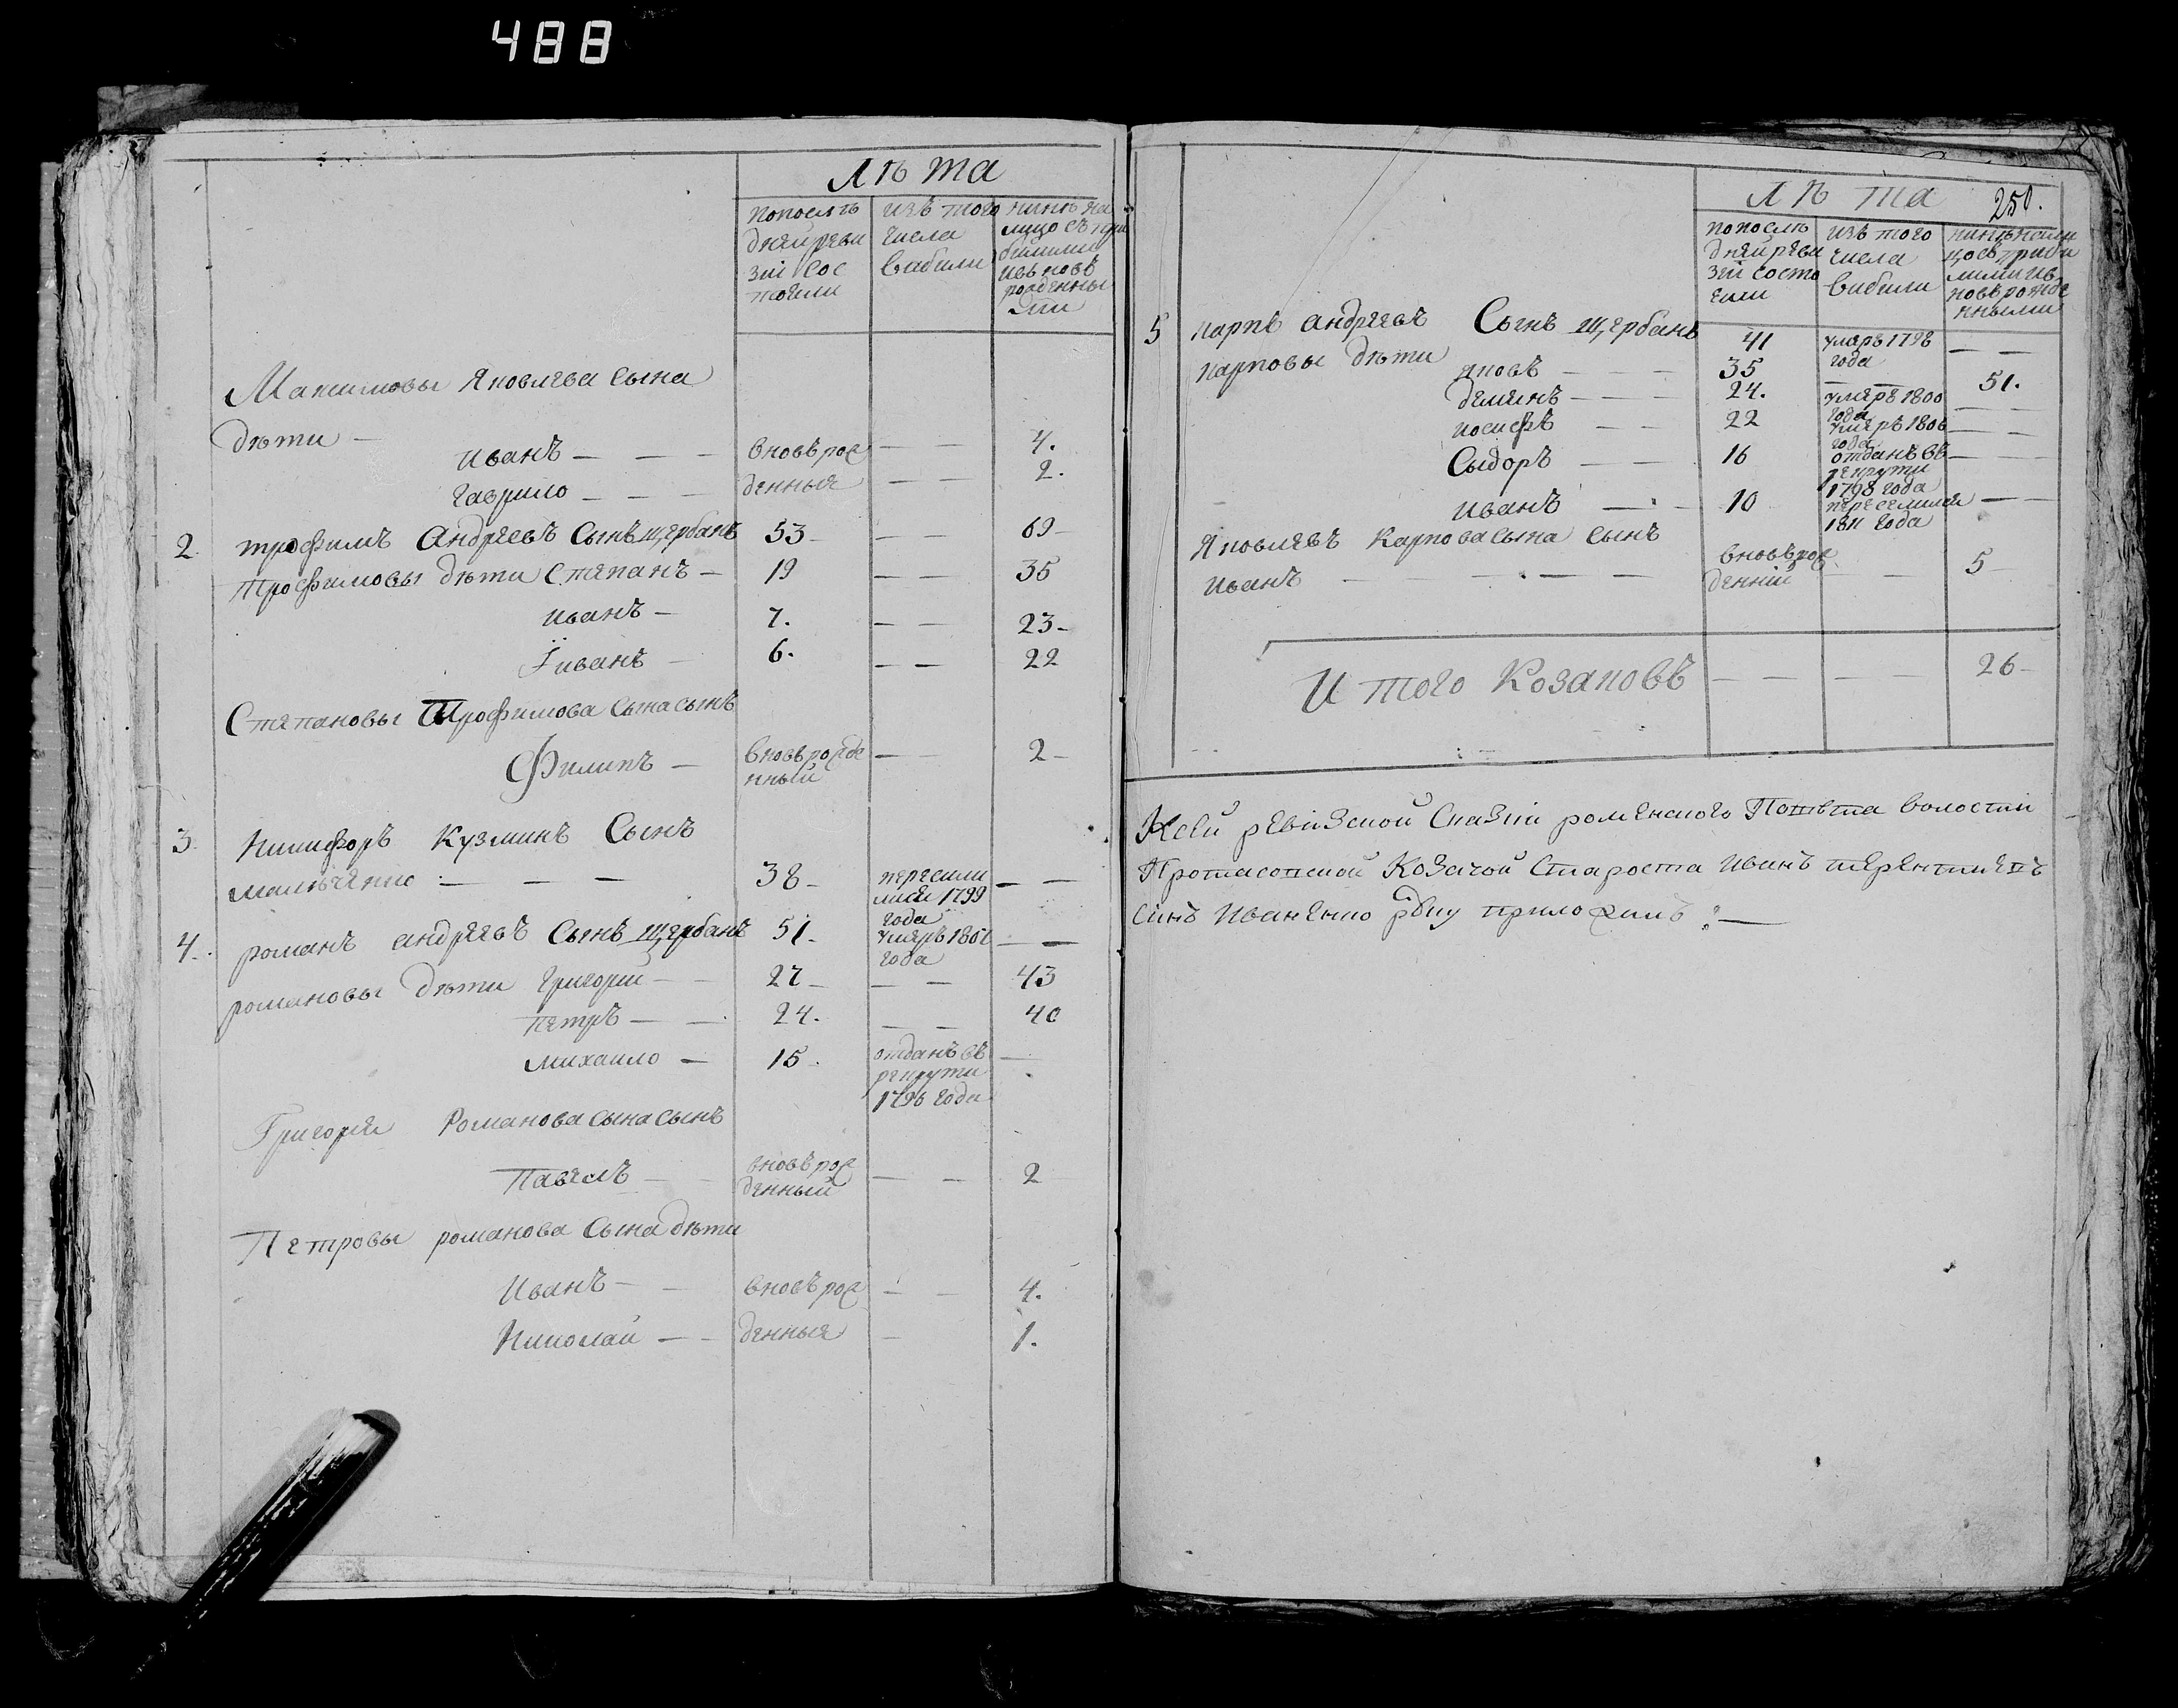 488
Лѣта
попослѣ
дней реви
зіи сос
тояли
изъ того
числа
вибили
нинѣ на
лицо съ при
билими
изь новь
рожденны
ми
Максимовы Яковлева сына
дѣти —
Иванъ — — — вновь рож — — 4.
Гаврило — — — денныя — — 2.
2. трофимъ Андреевъ Сынъ щербанъ 53 — — 69
Трофимовы дѣти Степанъ — 19 — — 35
иванъ — 7. — — 23
Їиванъ — 6. — — 22
Степановы Трофимова сына сынъ
Филипъ — вновь рожде — — 2
нный
3. Никифоръ Кузминъ Сынъ
мальченко — — — 38 пересили — —
лися 1799
года
4. романъ андреевъ Сынъ щербанъ 51. умеръ 1801 — —
года
романовы дѣти григорій — — 27 — — 43
петръ — — 24. — — 40
михаило — 15. отданъ въ —
рекрути
1796 года
Григорія Романова сына сынъ
Павелъ — вновь рож — — 2
денный
Петровы романова Сына дѣти
Иванъ — — вновь рож — — 4.
Николай — — денныя — 1.
Лѣта 250.
попослѣ
дней реви
зіи состо
яли
изъ того
числа
вибили
нинѣ нали
цо съ приби
лими из
новь рожде
нными
5 карпъ андреевъ Сынъ щербанъ 41 умеръ 1798 — —
года
карповы дѣти яковъ — — — 35 — — 51.
демянъ — — — 24. умеръ 1800 — —
года
иосифъ — — 22 умеръ 1806 — —
года
Сыдоръ — — 16 отданъ въ — —
рекрути
1798 года
иванъ — — 10 переселился — —
1811 года
Яковлевъ Карпова сына сынъ
иванъ — — — — вновь рож — — 5
денній
Итого Козаковъ — — — — 26
Ксей ревизской Сказки роменского Повѣта волостій
Протасовской Козачой Староста иванъ терентиевъ
синъ Иваненко рвку приложилъ: —